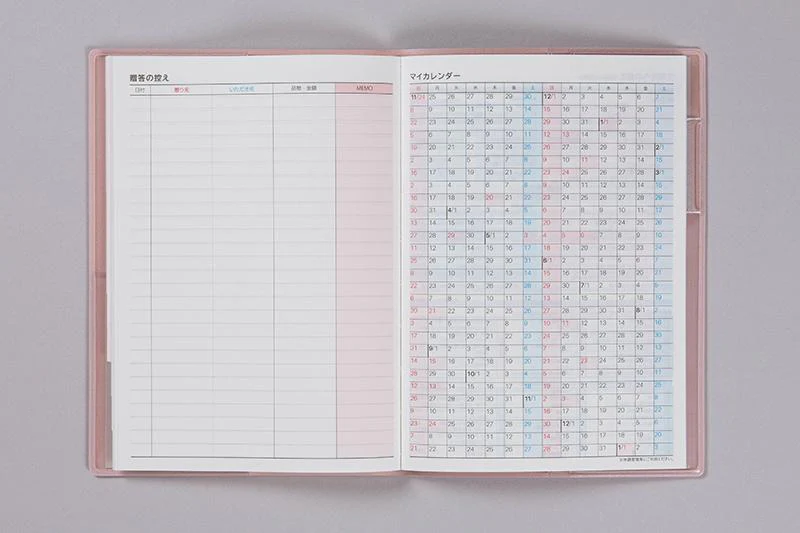 贈答の控え
日付 贈り先 いただき先 品物・金額 MEMO
マイカレンダー
日 月 火 水 木 金 土 日 月 火 水 木 金 土
11/24 25 26 27 28 29 30 12/1 2 3 4 5 6 7
8 9 10 11 12 13 14 15 16 17 18 19 20 21
22 23 24 25 26 27 28 29 30 31 1/1 2 3 4
5 6 7 8 9 10 11 12 13 14 15 16 17 18
19 20 21 22 23 24 25 26 27 28 29 30 31 2/1
2 3 4 5 6 7 8 9 10 11 12 13 14 15
16 17 18 19 20 21 22 23 24 25 26 27 28 3/1
2 3 4 5 6 7 8 9 10 11 12 13 14 15
16 17 18 19 20 21 22 23 24 25 26 27 28 29
30 31 4/1 2 3 4 5 6 7 8 9 10 11 12
13 14 15 16 17 18 19 20 21 22 23 24 25 26
27 28 29 30 5/1 2 3 4 5 6 7 8 9 10
11 12 13 14 15 16 17 18 19 20 21 22 23 24
25 26 27 28 29 30 31 6/1 2 3 4 5 6 7
8 9 10 11 12 13 14 15 16 17 18 19 20 21
22 23 24 25 26 27 28 29 30 7/1 2 3 4 5
6 7 8 9 10 11 12 13 14 15 16 17 18 19
20 21 22 23 24 25 26 27 28 29 30 31 8/1 2
3 4 5 6 7 8 9 10 11 12 13 14 15 16
17 18 19 20 21 22 23 24 25 26 27 28 29 30
31 9/1 2 3 4 5 6 7 8 9 10 11 12 13
14 15 16 17 18 19 20 21 22 23 24 25 26 27
28 29 30 10/1 2 3 4 5 6 7 8 9 10 11
12 13 14 15 16 17 18 19 20 21 22 23 24 25
26 27 28 29 30 31 11/1 2 3 4 5 6 7 8
9 10 11 12 13 14 15 16 17 18 19 20 21 22
23 24 25 26 27 28 29 30 12/1 2 3 4 5 6
7 8 9 10 11 12 13 14 15 16 17 18 19 20
21 22 23 24 25 26 27 28 29 30 31 1/1 2 3